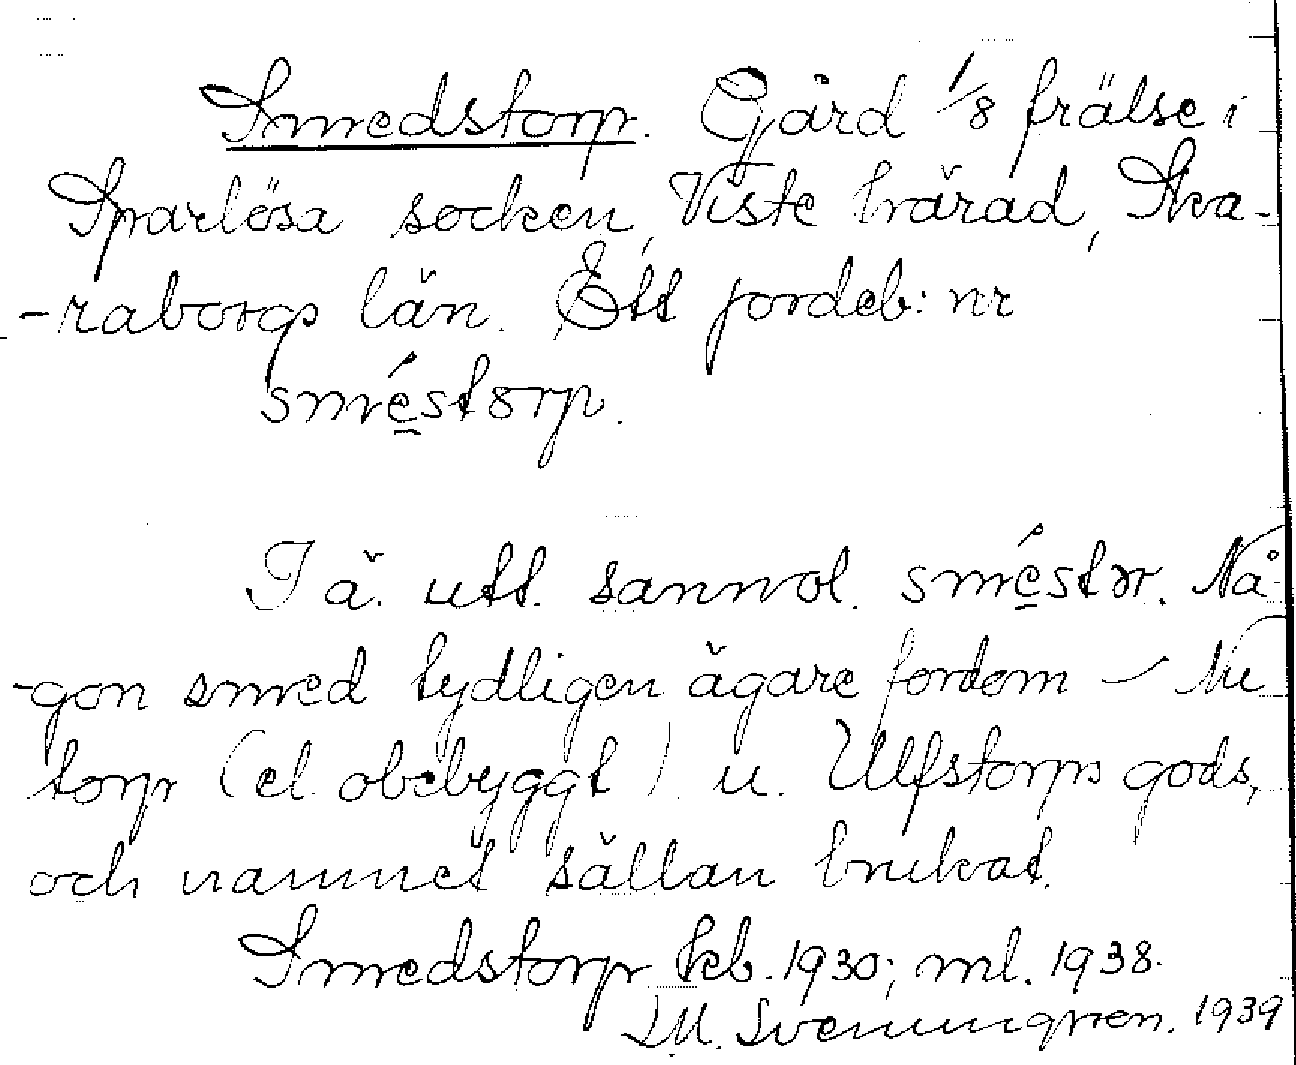 Smedstorp. Gård 1/8 frälse i
Sparlösa socken, Viste härad, Ska-
-raborgs län. Ett jordeb: nr
sméstorp.
I ä. utt. sannol. sméstər. Nå-
-gon smed tydligen ägare fordom – Nu
torp (el. obebyggt) u. Ulfstorps gods,
och namnet sällan brukat.
Smedstorp kb. 1930; ml. 1938.
D.M. Svenungren. 1939